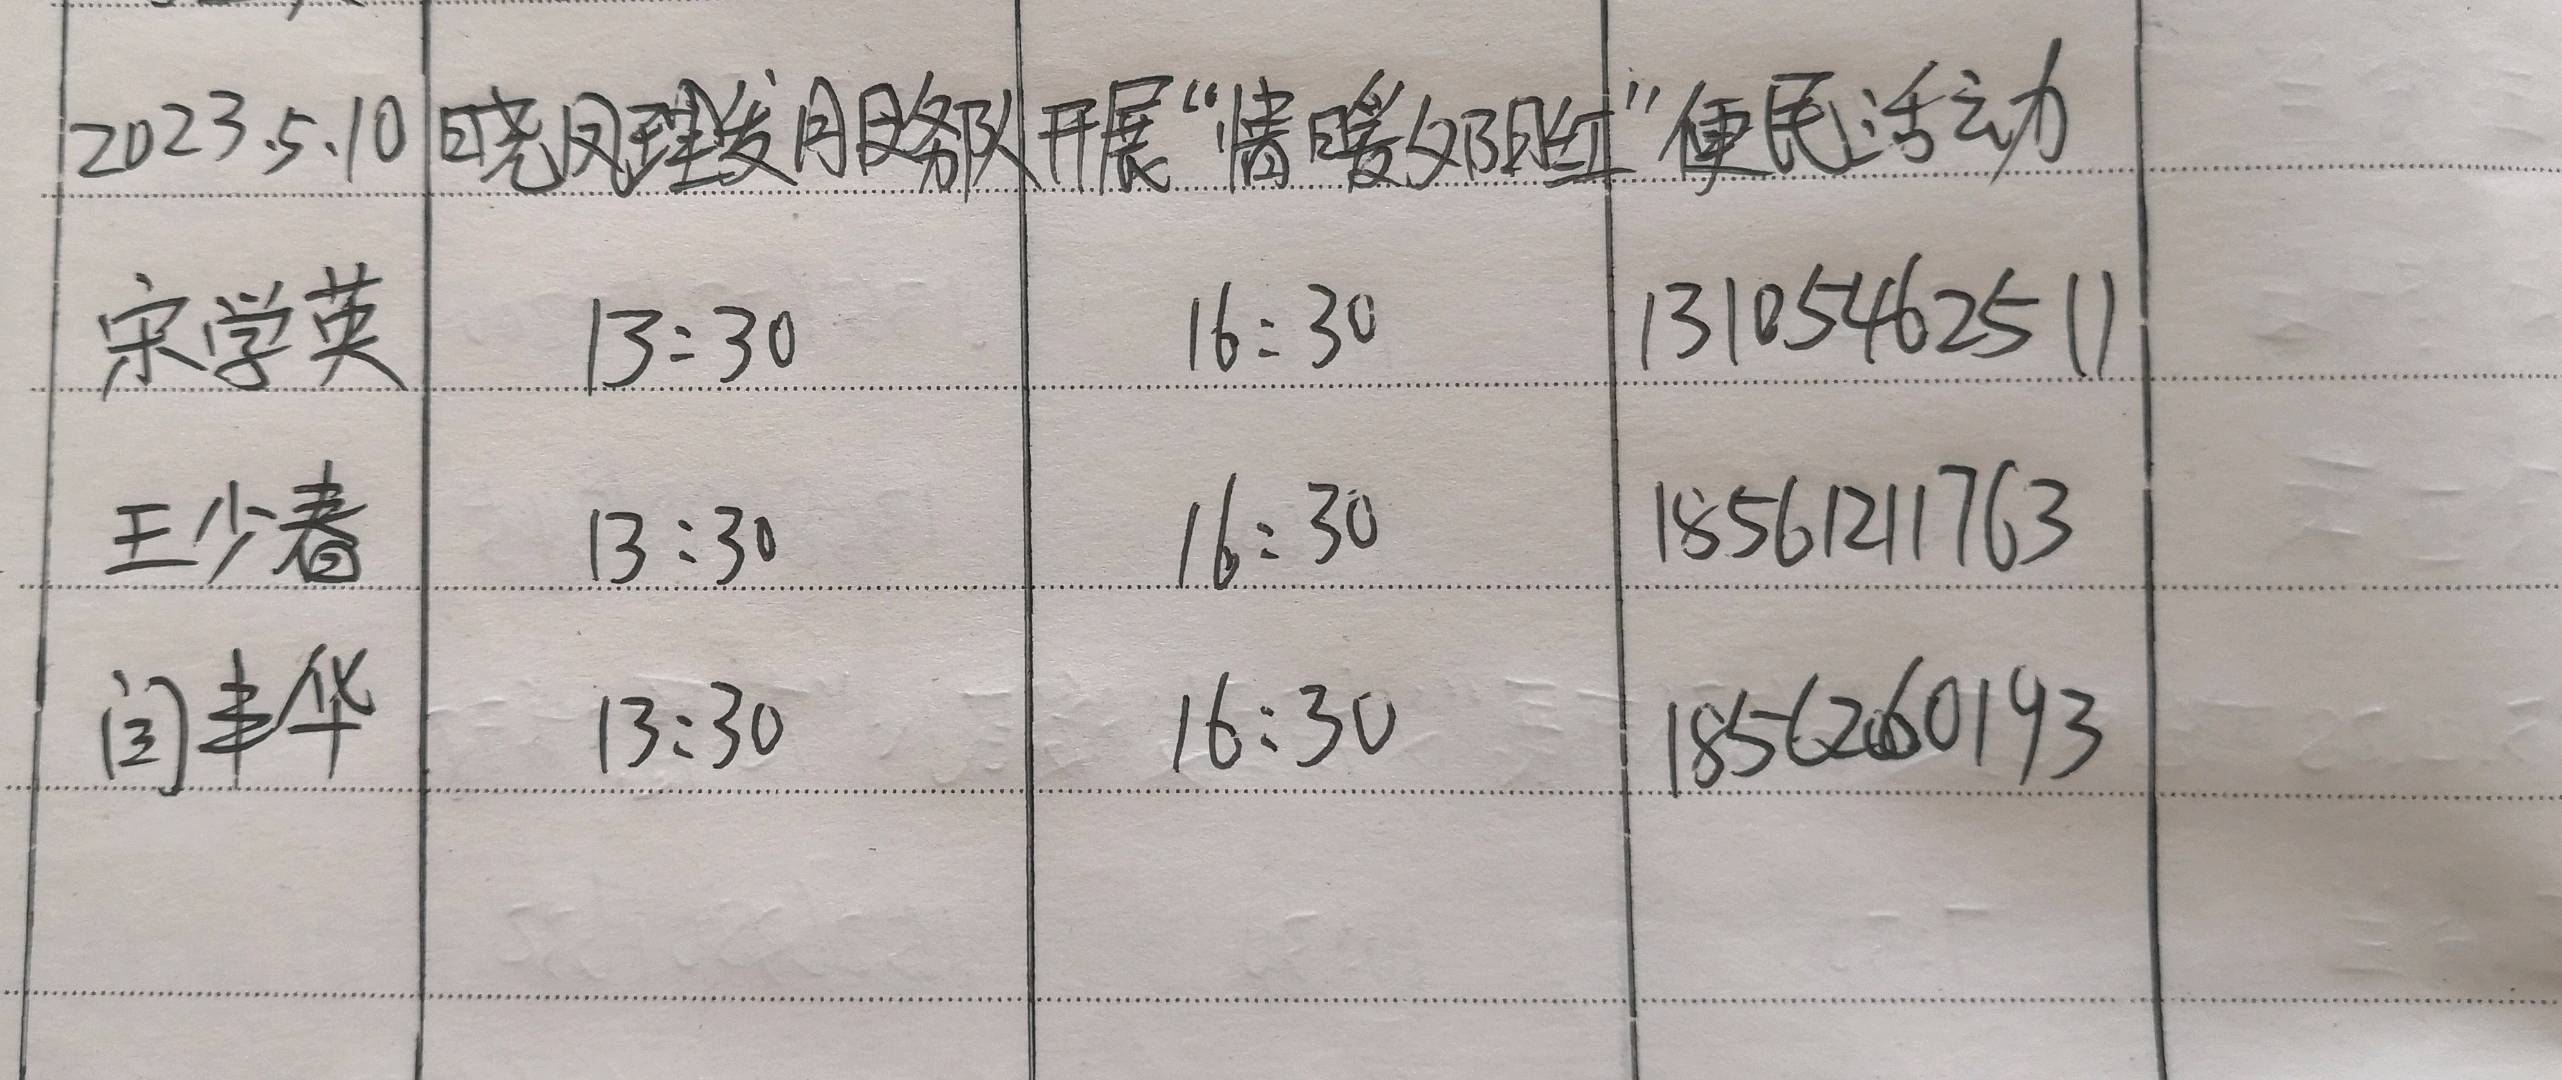 2023.5.10 晓凤理发服务队开展“情暖夕阳红”便民活动
宋学英 13:30 16:30 13105462511
王少春 13:30 16:30 18561211763
闫丰华 13:30 16:30 18562660193